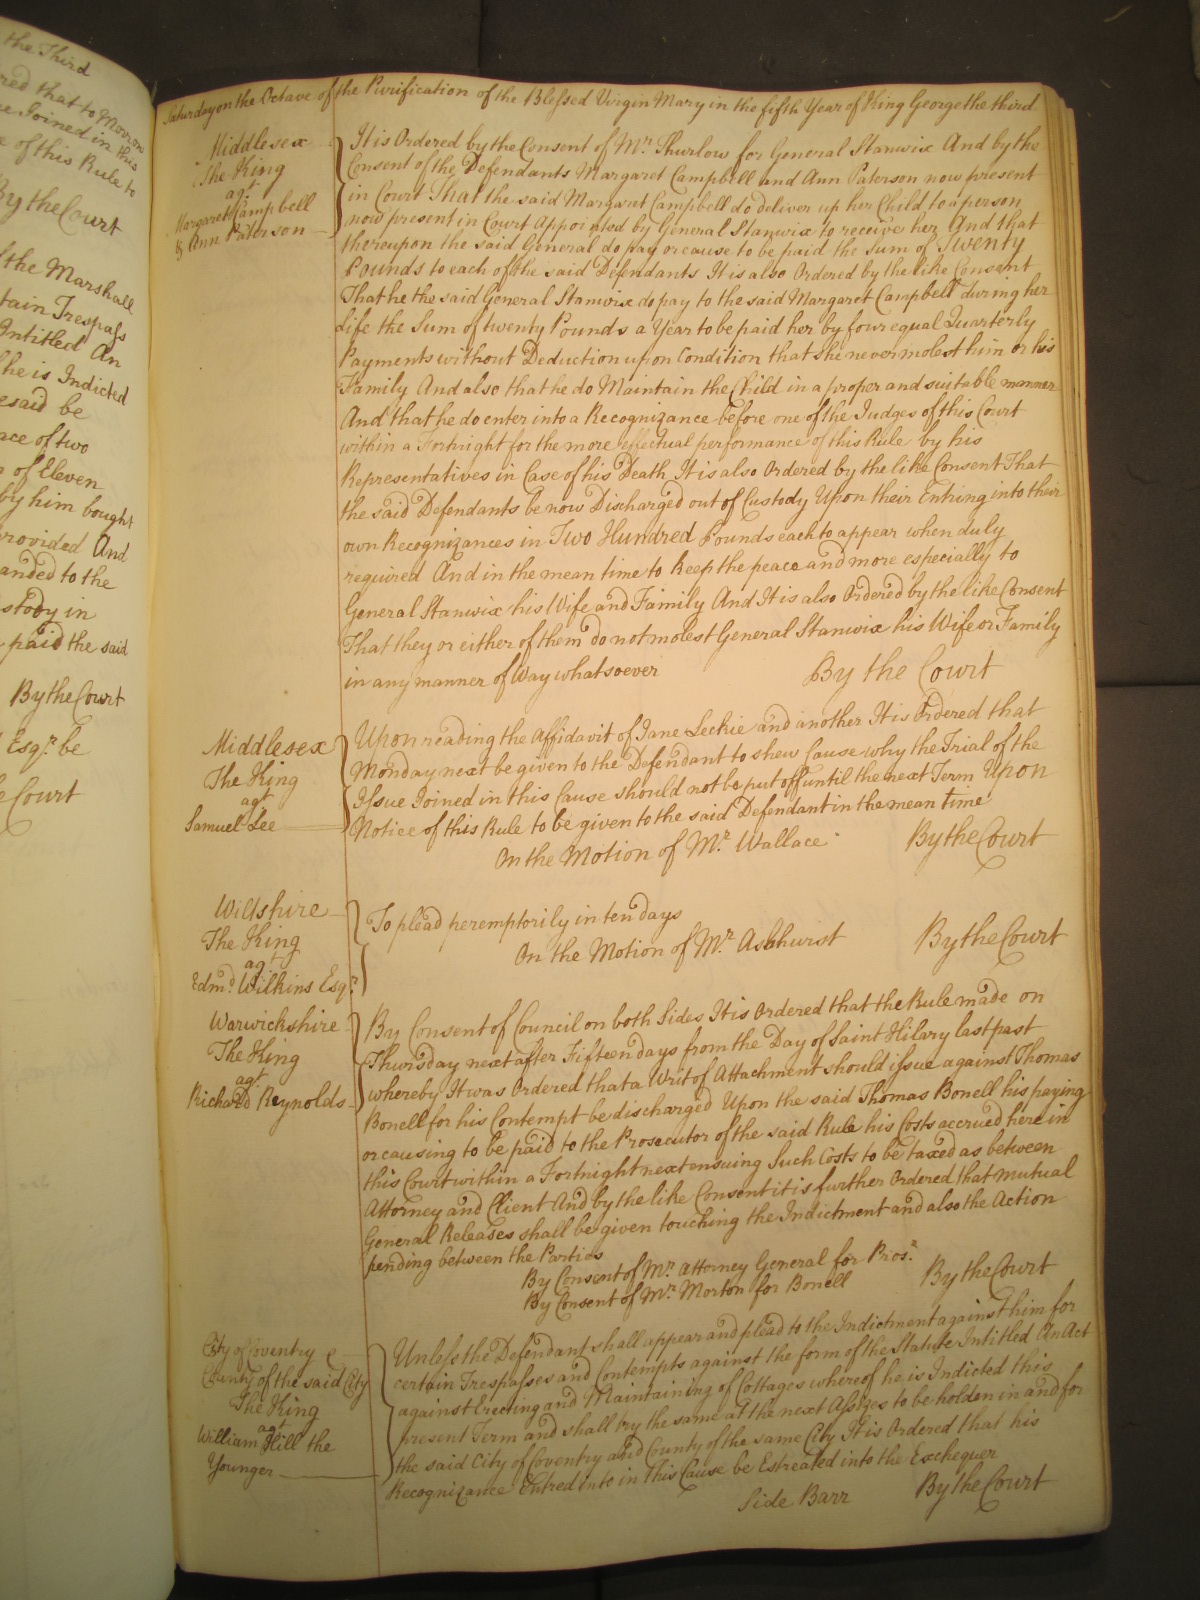 the Third
red that to Morrow
e Joined in this
e of this Rule to
By the Court
f the Marshall
tain Trespass
Intitled An
he is Indicted
esaid be
ace of two
of Eleven
by him bought
rovided And
anded to the
stody in
paid the said
By the Court
Esqr. be
e Court
Saturday on the Octave of the Purification of the Blessed Virgin Mary in the fifth Year of King George the third
Middlesex
The King
agt.
Margaret Campbell
& Ann Paterson
It is Ordered by the Consent of Mr. Thurlow for General Stanwix And by the
Consent of the Defendants Margaret Campbell and Ann Paterson now present
in Court That the said Margaret Campbell do deliver up her Child to a person
now present in Court Appointed by General Stanwix to receive her And that
thereupon the said General do pay or cause to be paid the Sum of Twenty
Pounds to each of the said Defendants It is also Ordered by the like Consent
That he the said General Stanwix do pay to the said Margaret Campbell during her
Life the Sum of twenty Pounds a Year to be paid her by four equal Quarterly
Payments without Deduction upon Condition that she never molest him or his
Family And also that he do Maintain the Child in a proper and suitable manner
And that he do enter into a Recognizance before one of the Judges of this Court
within a Fortnight for the more effectual performance of this Rule by his
Representatives in Case of his Death It is also Ordered by the like Consent That
the said Defendants be now Discharged out of Custody Upon their Entring into their
own Recognizances in Two Hundred Pounds each to appear when duly
required And in the mean time to keep the peace and more especially to
General Stanwix his Wife and Family And It is also Ordered by the like Consent
That they or either of them do not molest General Stanwix his Wife or Family
in any manner of Way whatsoever By the Court
Middlesex
The King
agt.
Samuel Lee
Upon reading the Affidavit of Jane Leckie and another It is Ordered that
Monday next be given to the Defendant to shew Cause why the Trial of the
Issue Joined in this Cause should not be put off until the next Term Upon
Notice of this Rule to be given to the said Defendant in the mean time
On the Motion of Mr. Wallace By the Court
Wiltshire
The King
agt.
Edmd. Wilkins Esqr.
To plead peremptorily in ten days
On the Motion of Mr. Ashhurst By the Court
Warwickshire
The King
agt.
Richard Reynolds
By Consent of Council on both Sides It is Ordered that the Rule made on
Thursday next after Fifteen days from the Day of Saint Hilary last past
whereby It was Ordered that a Writ of Attachment should issue against Thomas
Bonell for his Contempt be discharged Upon the said Thomas Bonell his paying
or causing to be paid to the Prosecutor of the said Rule his Costs accrued here in
this Court within a Fortnight next ensuing Such Costs to be taxed as between
Attorney and Client And by the like Consent it is further Ordered that mutual
General Releases shall be given touching the Indictment and also the Action
pending between the Parties
By Consent of Mr. Attorney General for Prosr.
By Consent of Mr. Morton for Bonell By the Court
City of Coventry &
County of the said City
The King
agt.
William Hill the
Younger
Unless the Defendant shall appear and plead to the Indictment against him for
certain Trespasses and Contempts against the form of the Statute Intitled An Act
against Erecting and Maintaining of Cottages whereof he is Indicted this
present Term and shall try the same at the next Assizes to be holden in and for
the said City of Coventry and County of the same City It is Ordered that his
Recognizance Entred into in this Cause be Estreated into the Exchequer
Side Barr By the Court